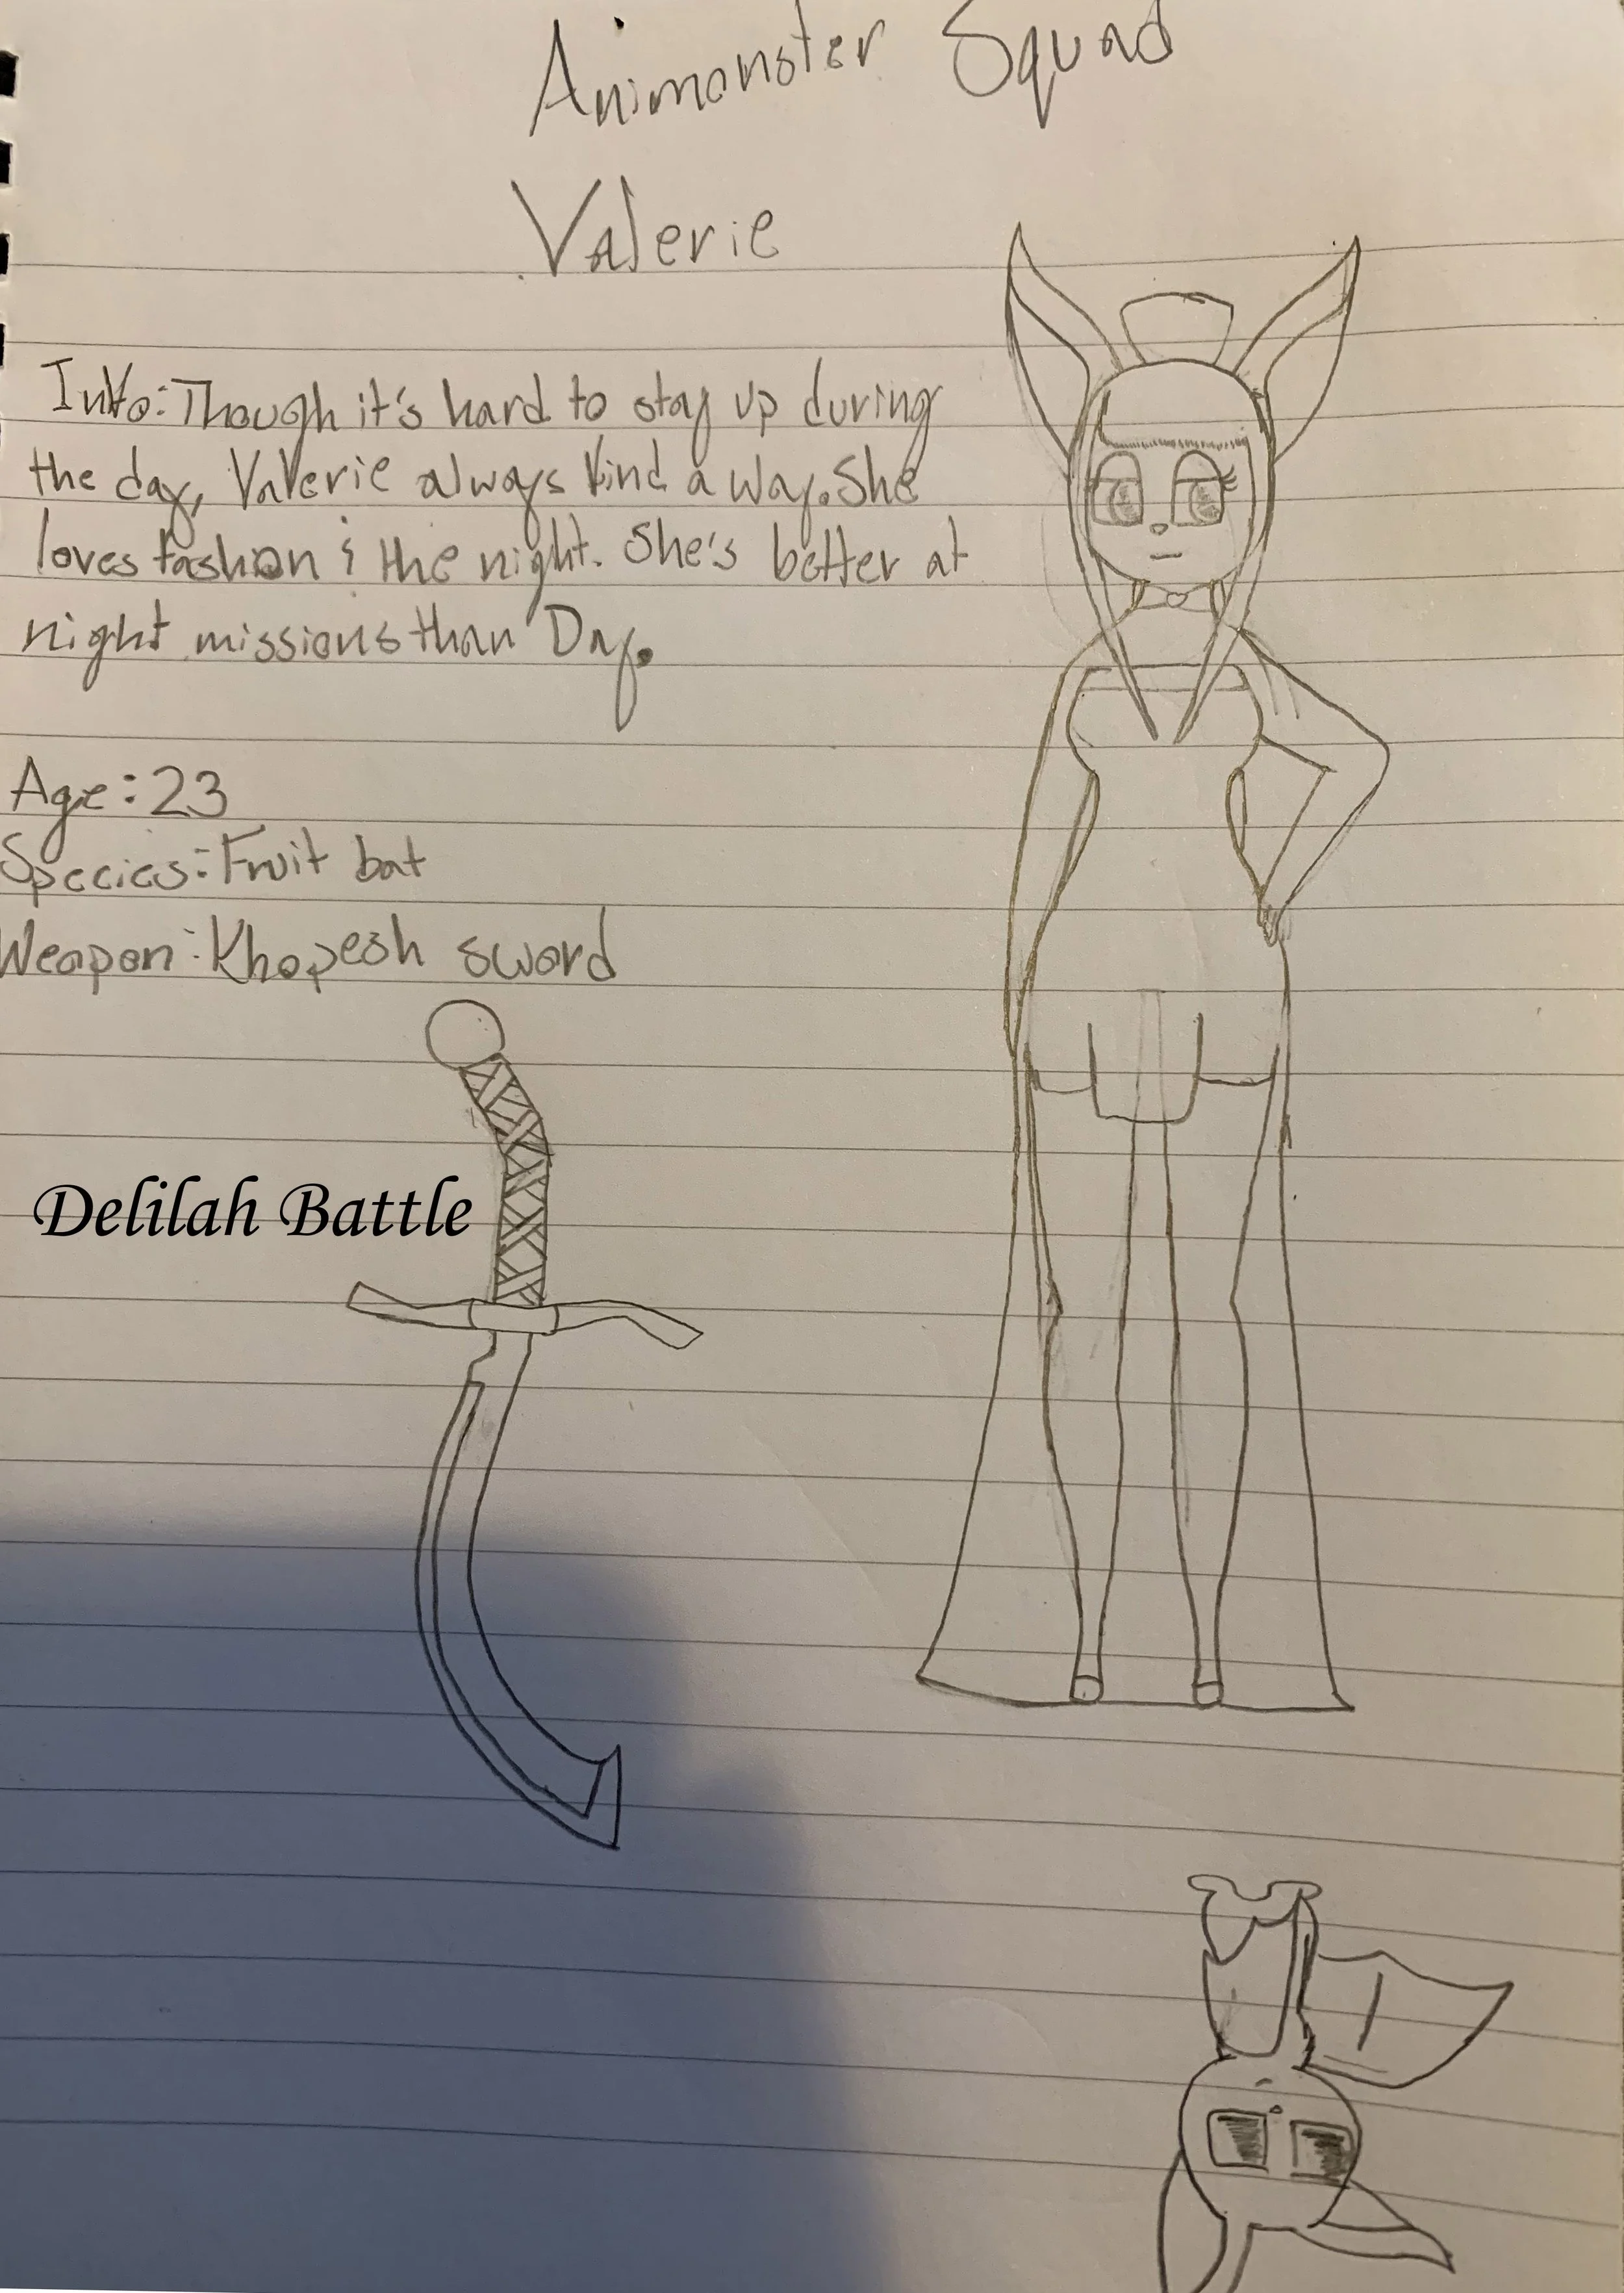 Animonster Squad
Valerie
Info: Though it's hard to stay up during
the day, Valerie always find a way. She
loves fashion & the night. She's better at
night missions than Day.
Age: 23
Species: Fruit bat
Weapon: Khopesh sword
Delilah Battle